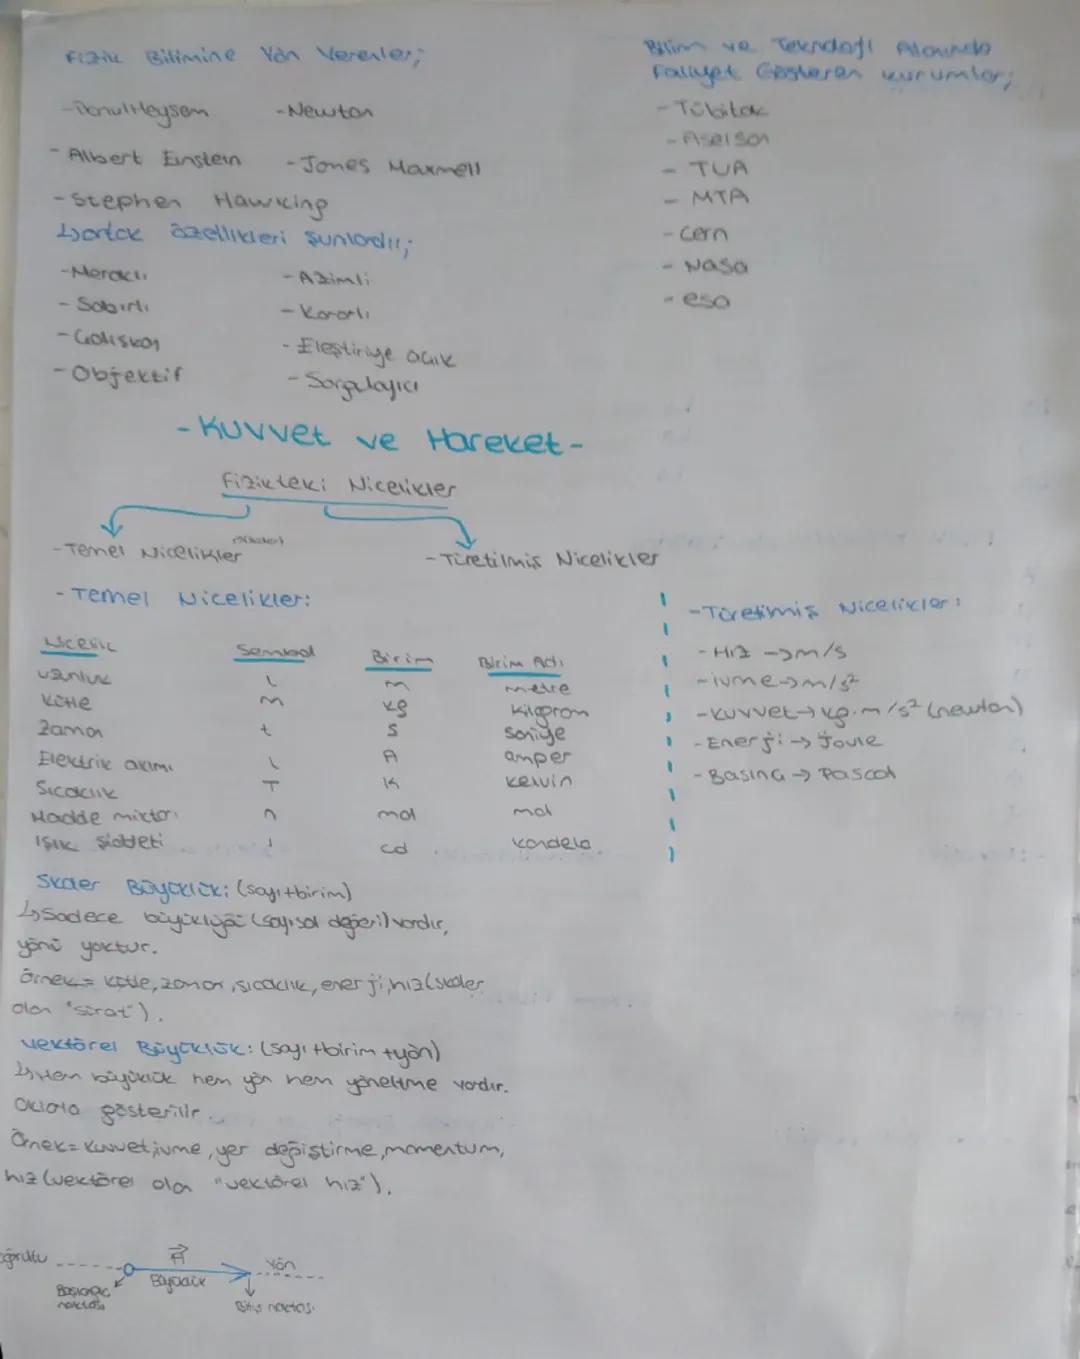 Fizik Bilimine Yön Verenler;
- İbnulHeysem - Newton
- Albert Einstein - Jones Maxmell
- Stephen Hawking
↳ortak özellikleri şunlardır;
- Meraklı - Azimli
- Sabırlı - Kararlı
- Çalışkan - Eleştiriye açık
- Objektif - Sorgulayıcı
Bilim ve Teknoloji Alanında
Faliyet Gösteren kurumlar;
- Tübitak
- Aselsan
- TUA
- MTA
- Cern
- Nasa
- esa
- Kuvvet ve Hareket -
Fizikteki Nicelikler
- Temel Nicelikler - Türetilmiş Nicelikler
- Temel Nicelikler:
Nicelik Sembol Birim Birim Adı
uzunluk l m metre
Kütle m kg kilogram
Zaman t s saniye
Elektrik akımı I A amper
Sıcaklık T K kelvin
Madde miktarı n mol mol
Işık şiddeti I cd kandela
- Türetimiş Nicelikler:
- Hız → m/s
- ivme → m/s²
- kuvvet → kg.m/s² (newton)
- Enerji → Joule
- Basınç → Pascal
Skaler Büyüklük: (sayı+birim)
↳Sadece büyüklüğü (sayısal değeri) vardır,
yönü yoktur.
Örnek= kütle, zaman, sıcaklık, enerji, hız (skaler
olan "sürat").
Vektörel Büyüklük: (sayı+birim+yön)
↳Hem büyüklük hem yön hem yöneltme vardır.
Oklarla gösterilir.
Örnek= Kuvvet, ivme, yer değiştirme, momentum,
hız (vektörel olan "vektörel hız").
A Yön
Başlangıç Büyüklük
noktası Bitiş noktası